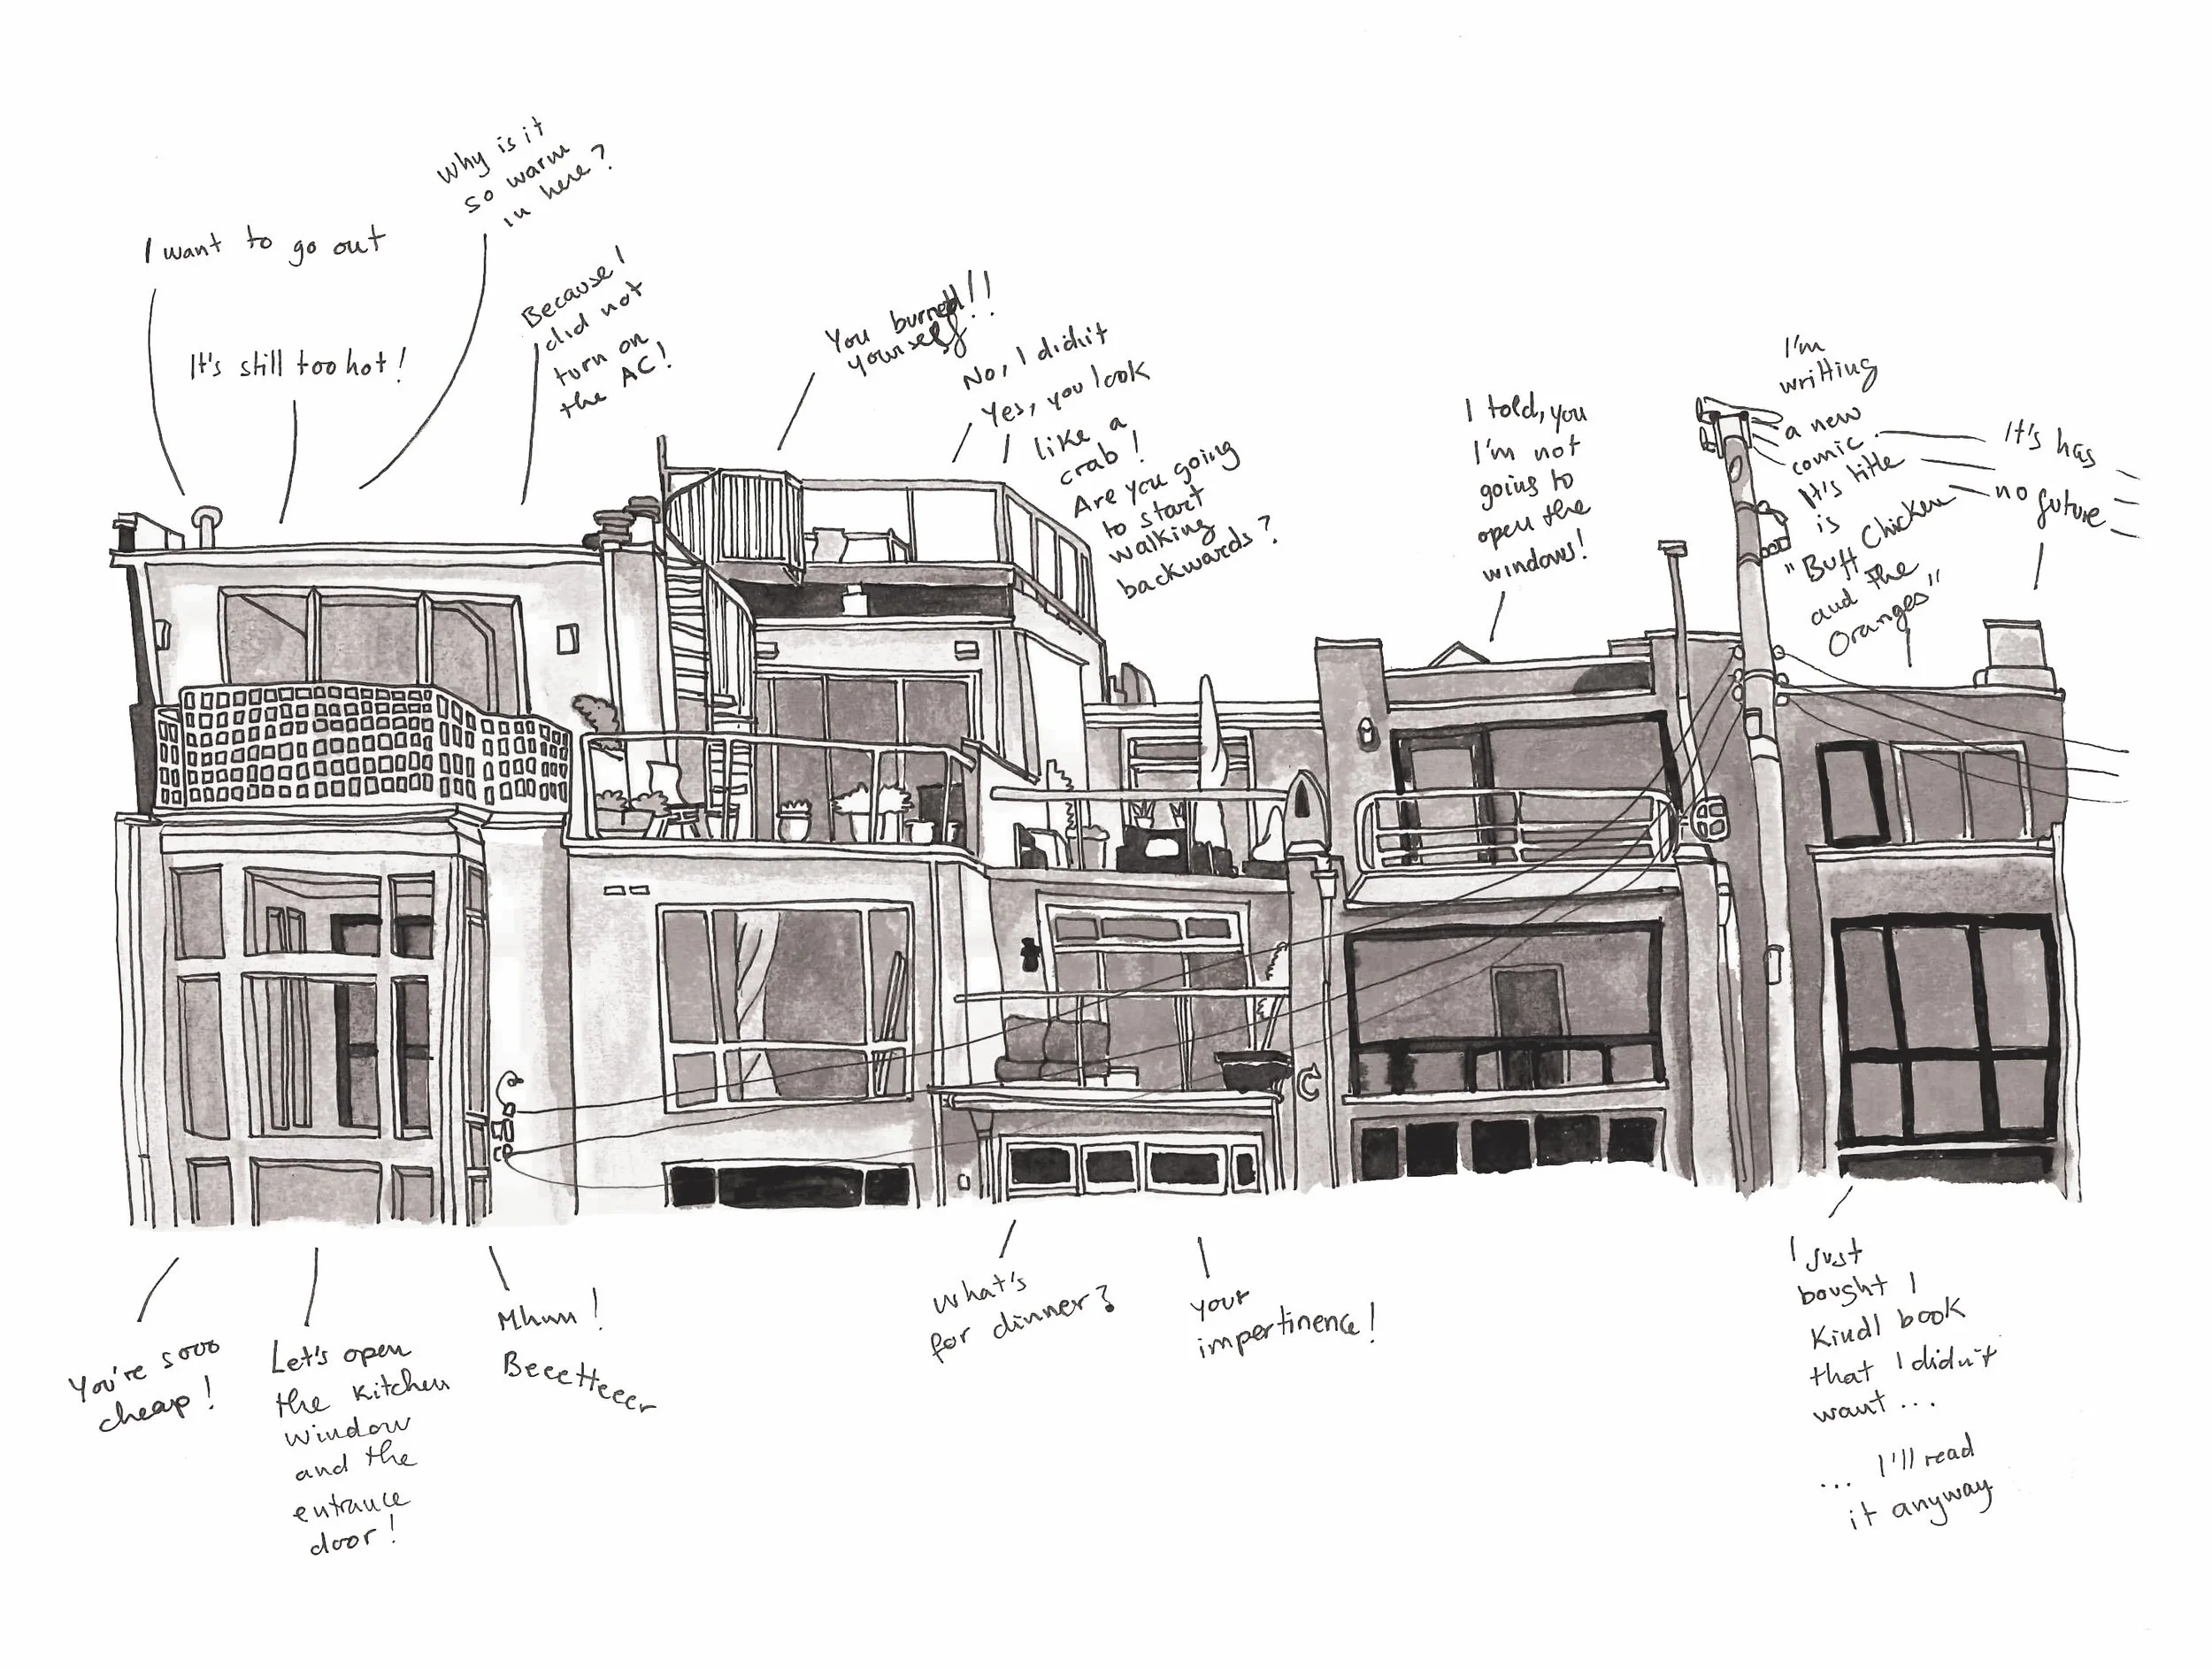 I want to go out
It's still too hot!
Why is it
so warm
in here?
Because I
did not
turn on
the AC!
You burned!!
yourself
No, I didn't
Yes, you look
like a
crab!
Are you going
to start
walking
backwards?
I told, you
I'm not
going to
open the
windows!
I'm
writting
a new
comic.
It's title
is
"Buff Chicken
and the
Oranges"
It's has
no future
You're sooo
cheap!
Let's open
the kitchen
window
and the
entrance
door!
Mhmm!
Beeetteeer
What's
for dinner?
your
impertinence!
I just
bought 1
Kindl book
that I didn't
want ...
... I'll read
it anyway